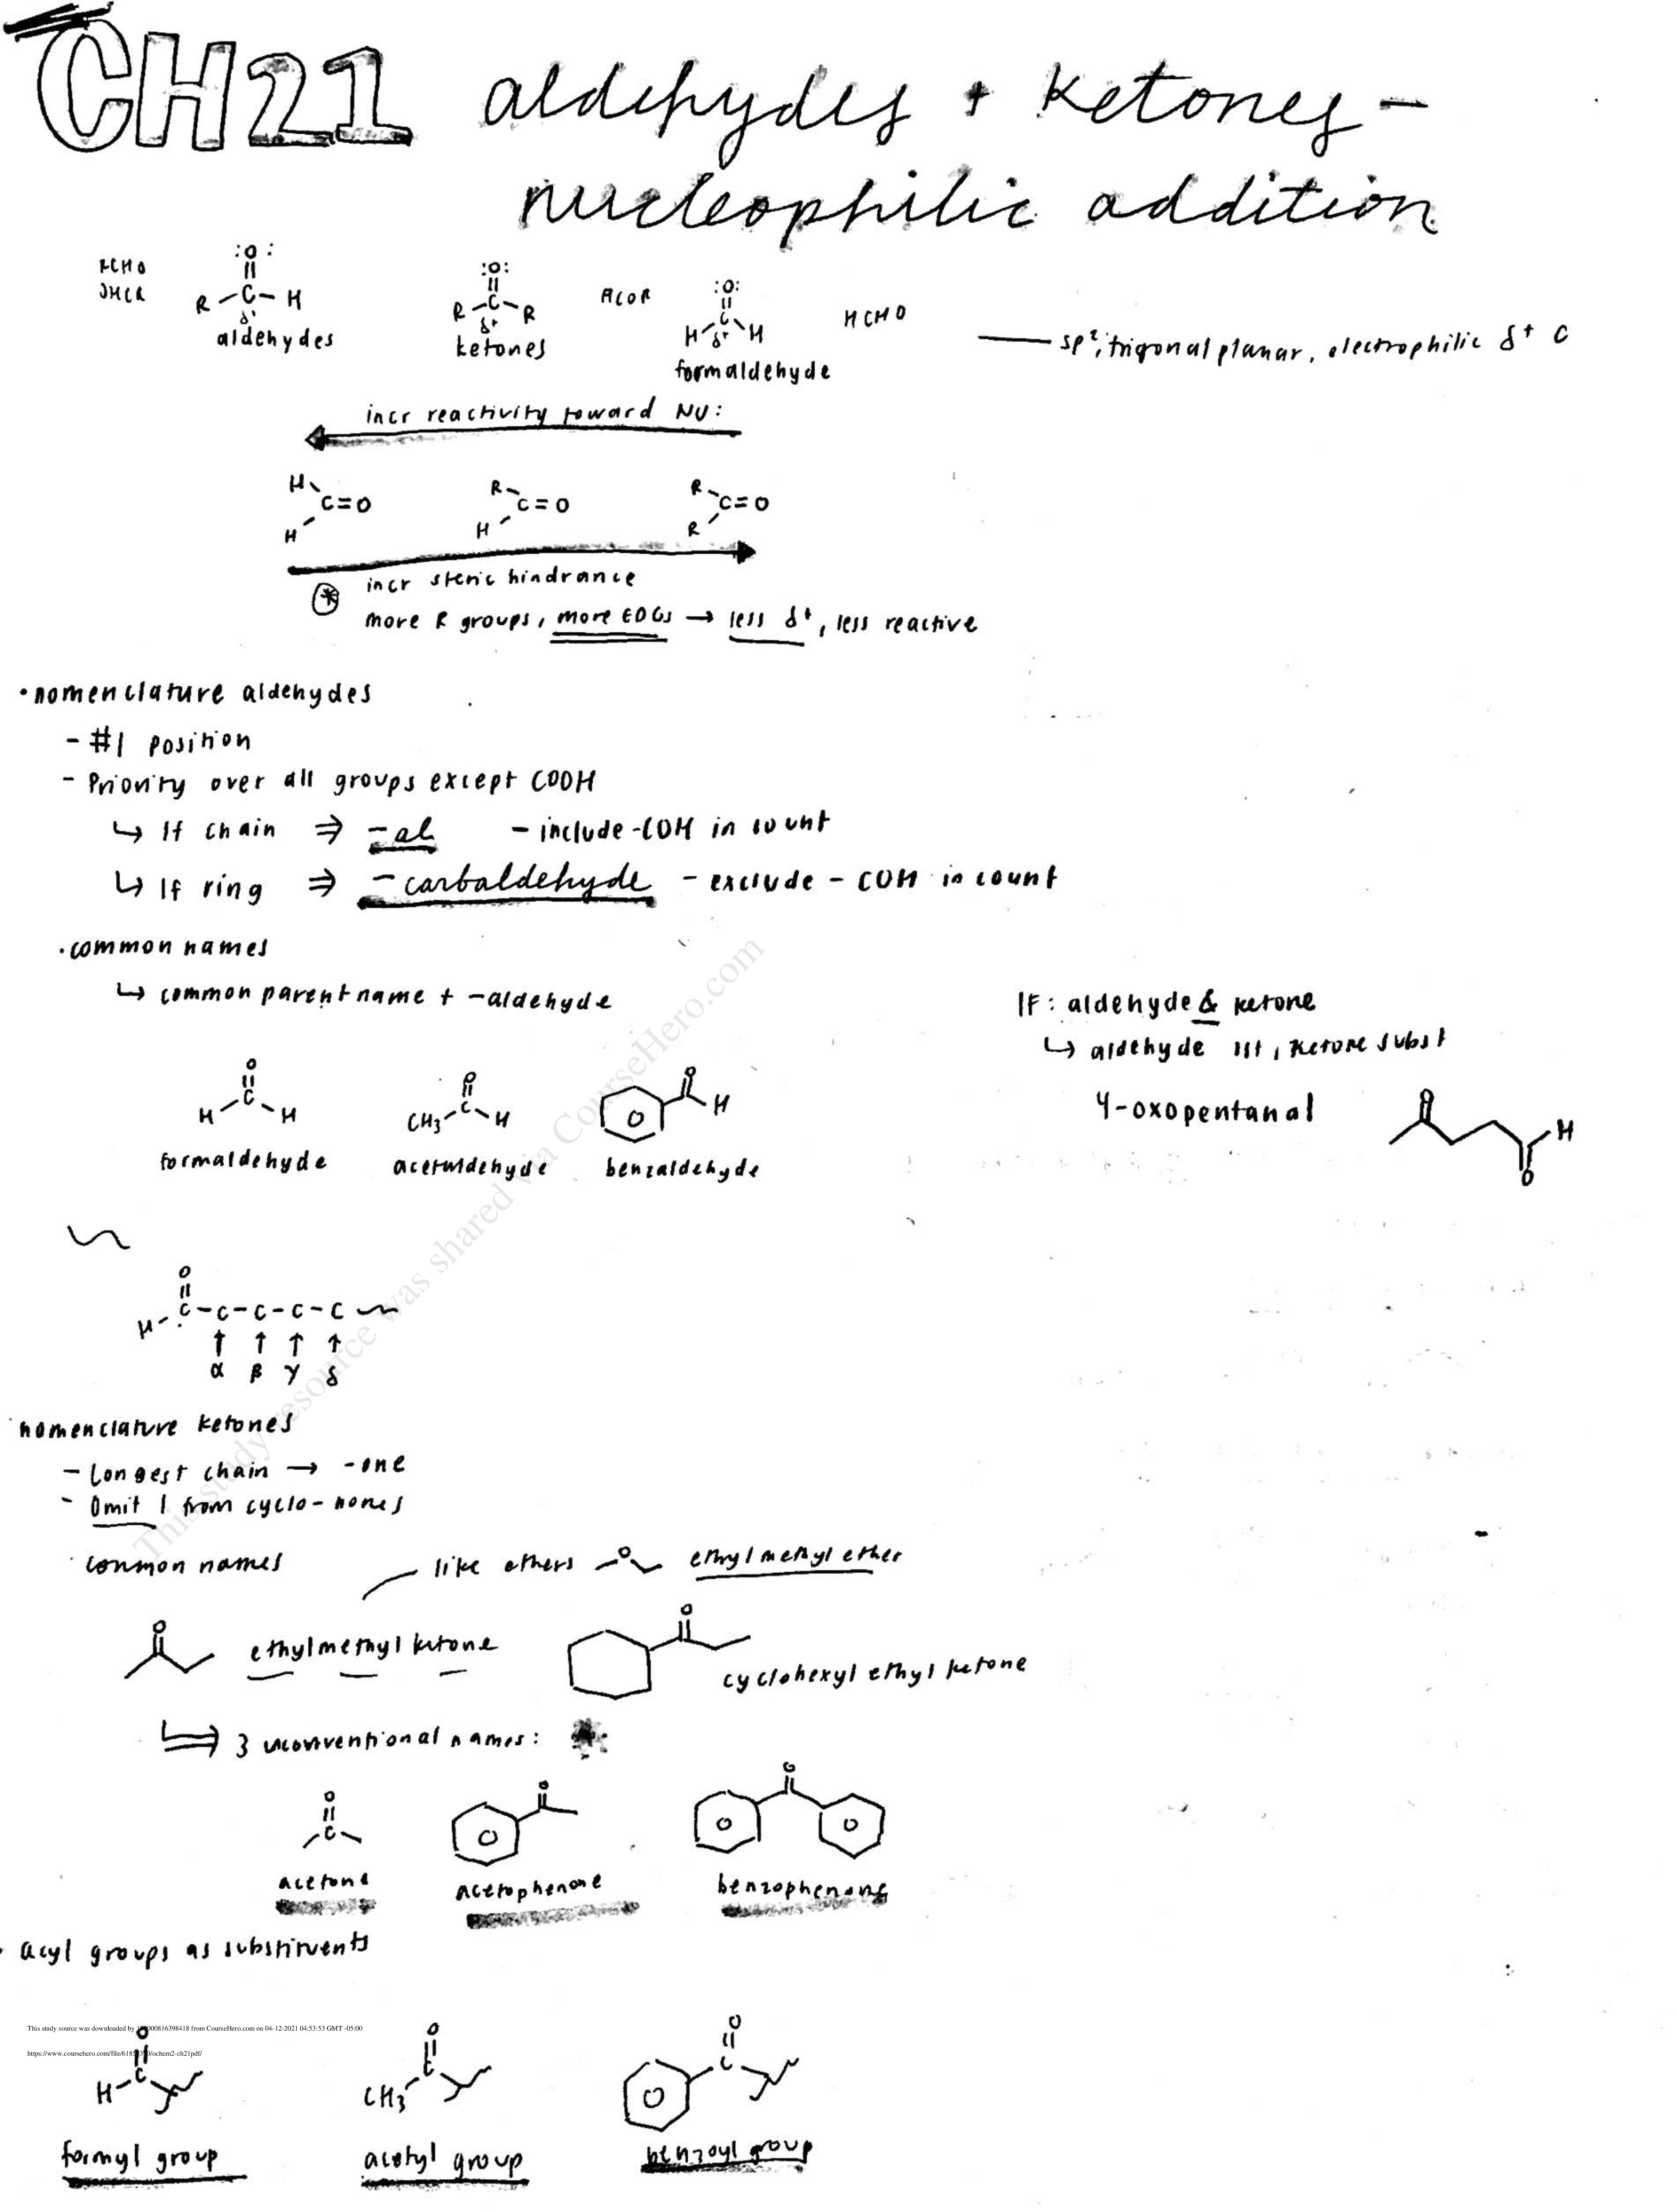 CH21 aldehydes + ketones –
nucleophilic addition
RCHO
OHCR
:O:
R C H
δ+
aldehydes
:O:
R C R
δ+
ketones
RCOR
:O:
H C H
δ+
formaldehyde
HCHO
sp², trigonal planar, electrophilic δ+ C
incr reactivity toward NU:
H C=O H
R C=O H
R C=O R
incr steric hindrance
* more R groups, more EDGs → less δ+, less reactive
• nomenclature aldehydes
– #1 position
– Priority over all groups except COOH
↳ If chain ⇒ –al – include -COH in count
↳ If ring ⇒ –carbaldehyde – exclude – COH in count
• common names
↳ common parent name + –aldehyde
IF: aldehyde & ketone
↳ aldehyde 1st, ketone subst
4-oxopentanal
O H
O
H C H
formaldehyde
O
CH3 C H
acetaldehyde
O
H
benzaldehyde
O
H C–C–C–C–C
↑ ↑ ↑ ↑
α β γ δ
• nomenclature ketones
– Longest chain → -one
– Omit 1 from cyclo-nones
• common names
like ethers O ethyl methyl ether
O
ethylmethyl ketone
O
cyclohexyl ethyl ketone
⇒ 3 unconventional names: *
O
C
acetone
O
acetophenone
O
benzophenone
• acyl groups as substituents
This study source was downloaded by 100000816398418 from CourseHero.com on 04-12-2021 04:53:53 GMT -05:00
O
H C
formyl group
O
CH3 C
acetyl group
O
C
benzoyl group
This study resource was shared via CourseHero.com